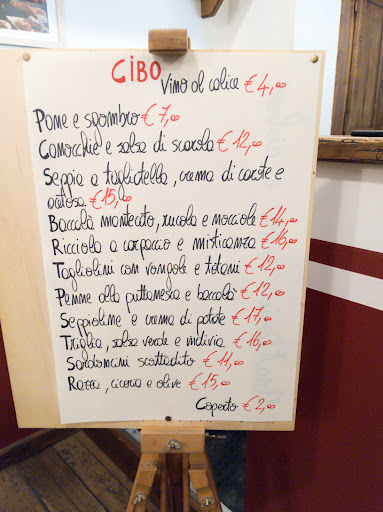 CIBO
Vino al calice € 4,00
Pane e sgombro € 7,00
Canocchie e salsa di scarola € 12,00
Seppia a tagliatella, crema di carote e
€ 15,00
Baccalà mantecato, rucola e nocciole € 14,00
Ricciola a carpaccio e misticanza € 16,00
Tagliolini con vongole e totani € 12,00
Penne alla puttanesca e baccalà € 12,00
Seppioline e crema di patate € 17,00
Triglia, salsa verde e indivia € 16,00
Sardoncini scottadito € 11,00
Razza, cicoria e olive € 15,00
Coperto € 2,00